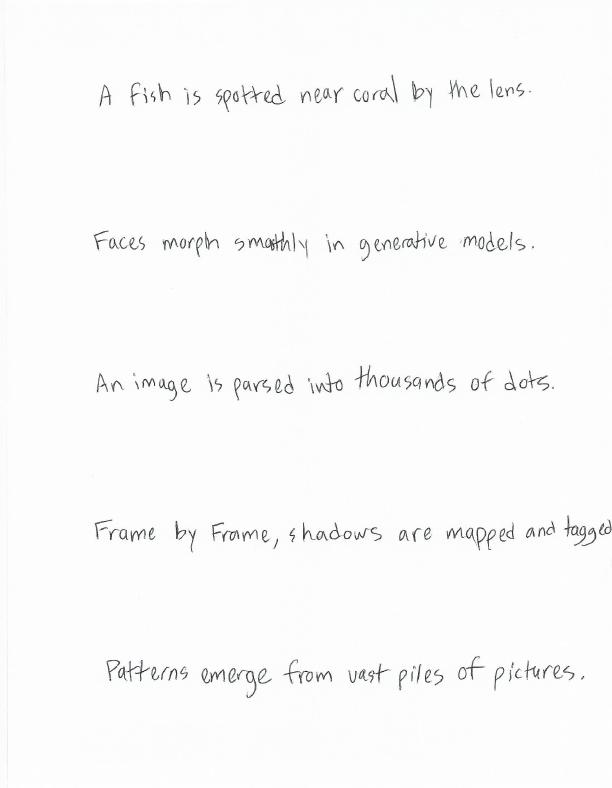 A fish is spotted near coral by the lens.
Faces morph smoothly in generative models.
An image is parsed into thousands of dots.
Frame by Frame, shadows are mapped and tagged
Patterns emerge from vast piles of pictures.